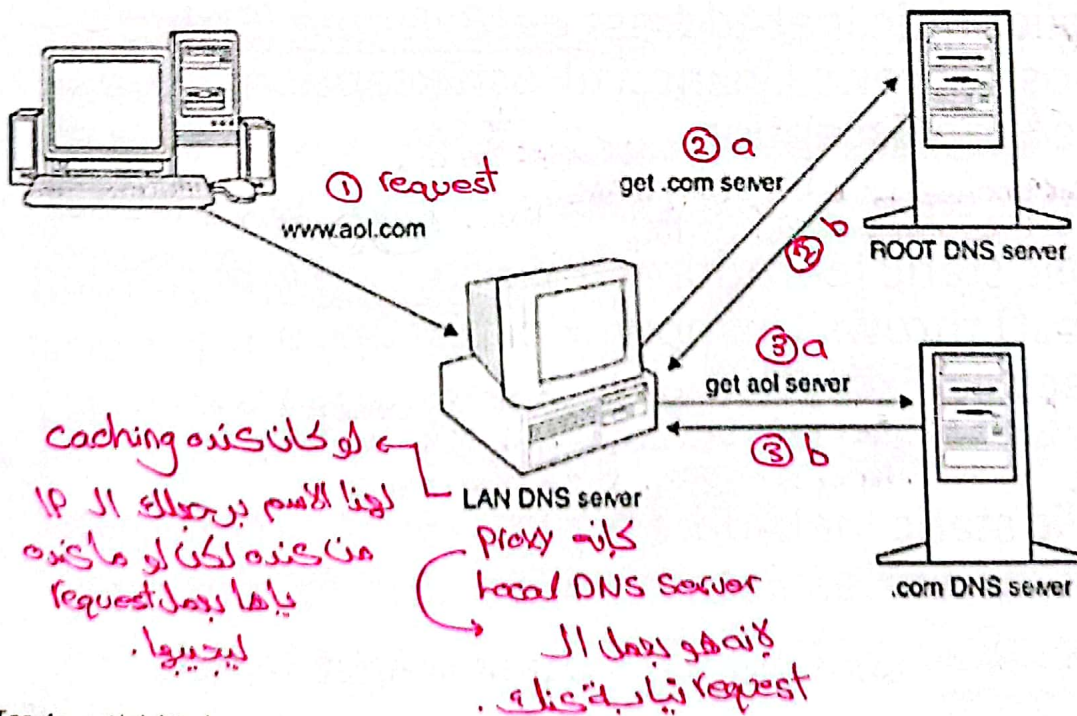 ① request
www.aol.com
② a
get .com server
② b
ROOT DNS server
③ a
get aol server
③ b
LAN DNS server
.com DNS server
لو كان عنده caching
لهذا الاسم برجعلك ال IP
من عنده لكن لو ما عنده
ياها بعمل request
ليجيبها.
كإنه Proxy
Local DNS Server
لإنه هو بعمل ال
request نيابة عنك.